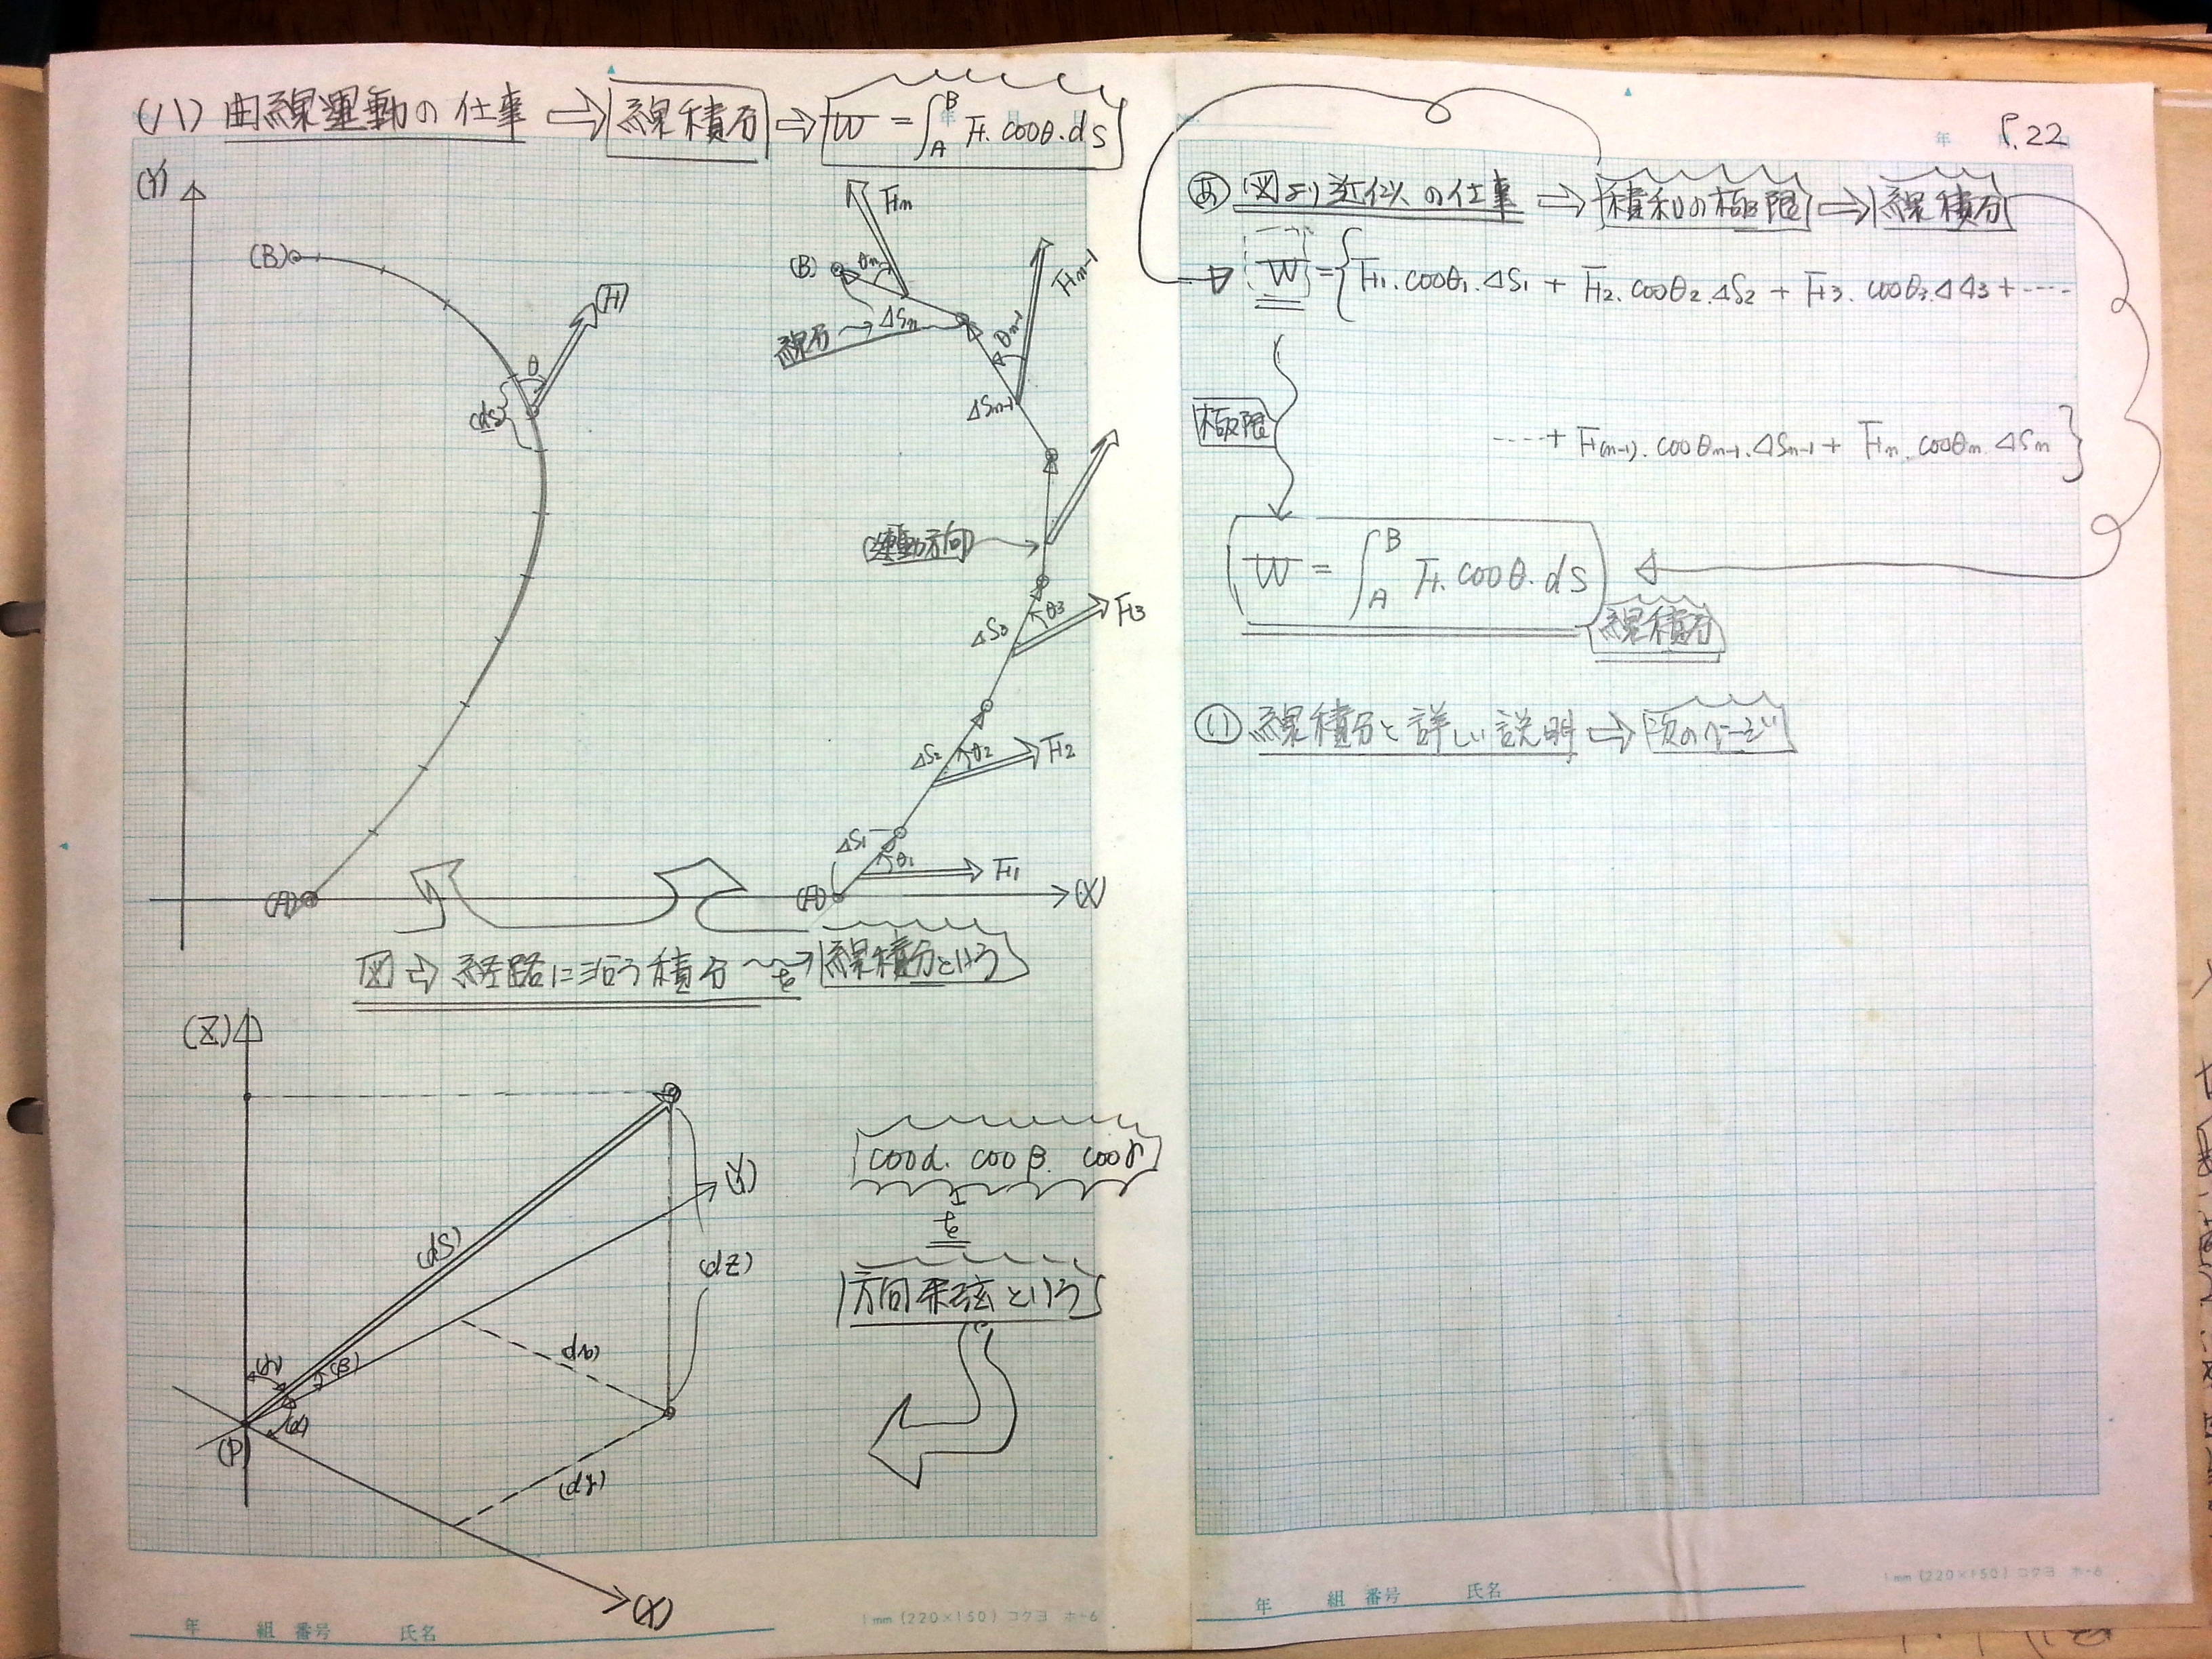 (ハ) 曲線運動の仕事 ⇒ 線積分 ⇒ W = ∫_A^B F・cosθ・ds
(Y)
(B)
(F)
θ
(ds)
(A)
Fn
(B)
θn
ΔSn
線分
Fn-1
θn-1
ΔSn-1
(運動方向)
ΔS3
θ3
F3
ΔS2
θ2
F2
ΔS1
θ1
F1
(A)
(X)
図 ⇒ 経路に沿う積分 を 線積分という
(Z)
(Y)
(dS)
(dZ)
(γ)
(β)
(α)
(P)
(dy)
(X)
cosα. cosβ. cosγ
を
方向余弦という
年 組 番号 氏名
1mm (220×150) コクヨ ホ-6
年
P.22
あ 図より近似の仕事 ⇒ 積和の極限 ⇒ 線積分
W = {F1・cosθ1・ΔS1 + F2・cosθ2・ΔS2 + F3・cosθ3・ΔS3 + ----
極限
----+ F(n-1)・cosθn-1・ΔSn-1 + Fn・cosθn・ΔSn}
W = ∫_A^B F・cosθ・ds
線積分
い 線積分と詳しい説明 ⇒ 次のページ
年 組 番号 氏名
1mm (220×150) コクヨ ホ-6